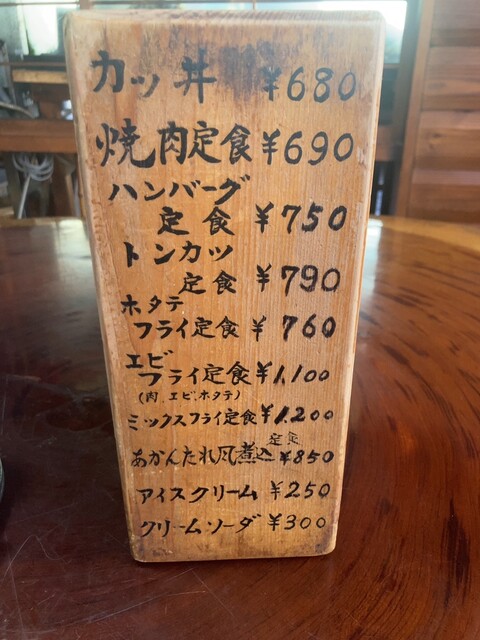 カツ丼 ¥680
焼肉定食 ¥690
ハンバーグ
定食 ¥750
トンカツ
定食 ¥790
ホタテ
フライ定食 ¥760
エビ
フライ定食 ¥1,100
(肉、エビ、ホタテ)
ミックスフライ定食 ¥1,200
定食
あかんたれ風煮込 ¥850
アイスクリーム ¥250
クリームソーダ ¥300